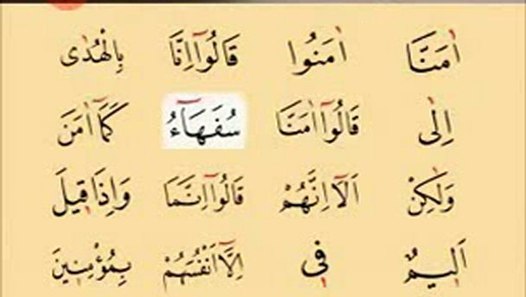 اٰمَنَّا اٰمَنُوا قَالُٓوا اِنَّا بِالْهُدٰى
اِلٰى قَالُٓوا اٰمَنَّا سُفَهَٓاءُ كَمَٓا اٰمَنَ
وَلٰكِنْ اَلَٓا اِنَّهُمْ قَالُٓوا اِنَّمَا وَاِذَا قٖيلَ
اَلٖيمٌ فٖى اِلَّٓا اَنْفُسَهُمْ بِمُؤْمِنٖينَ